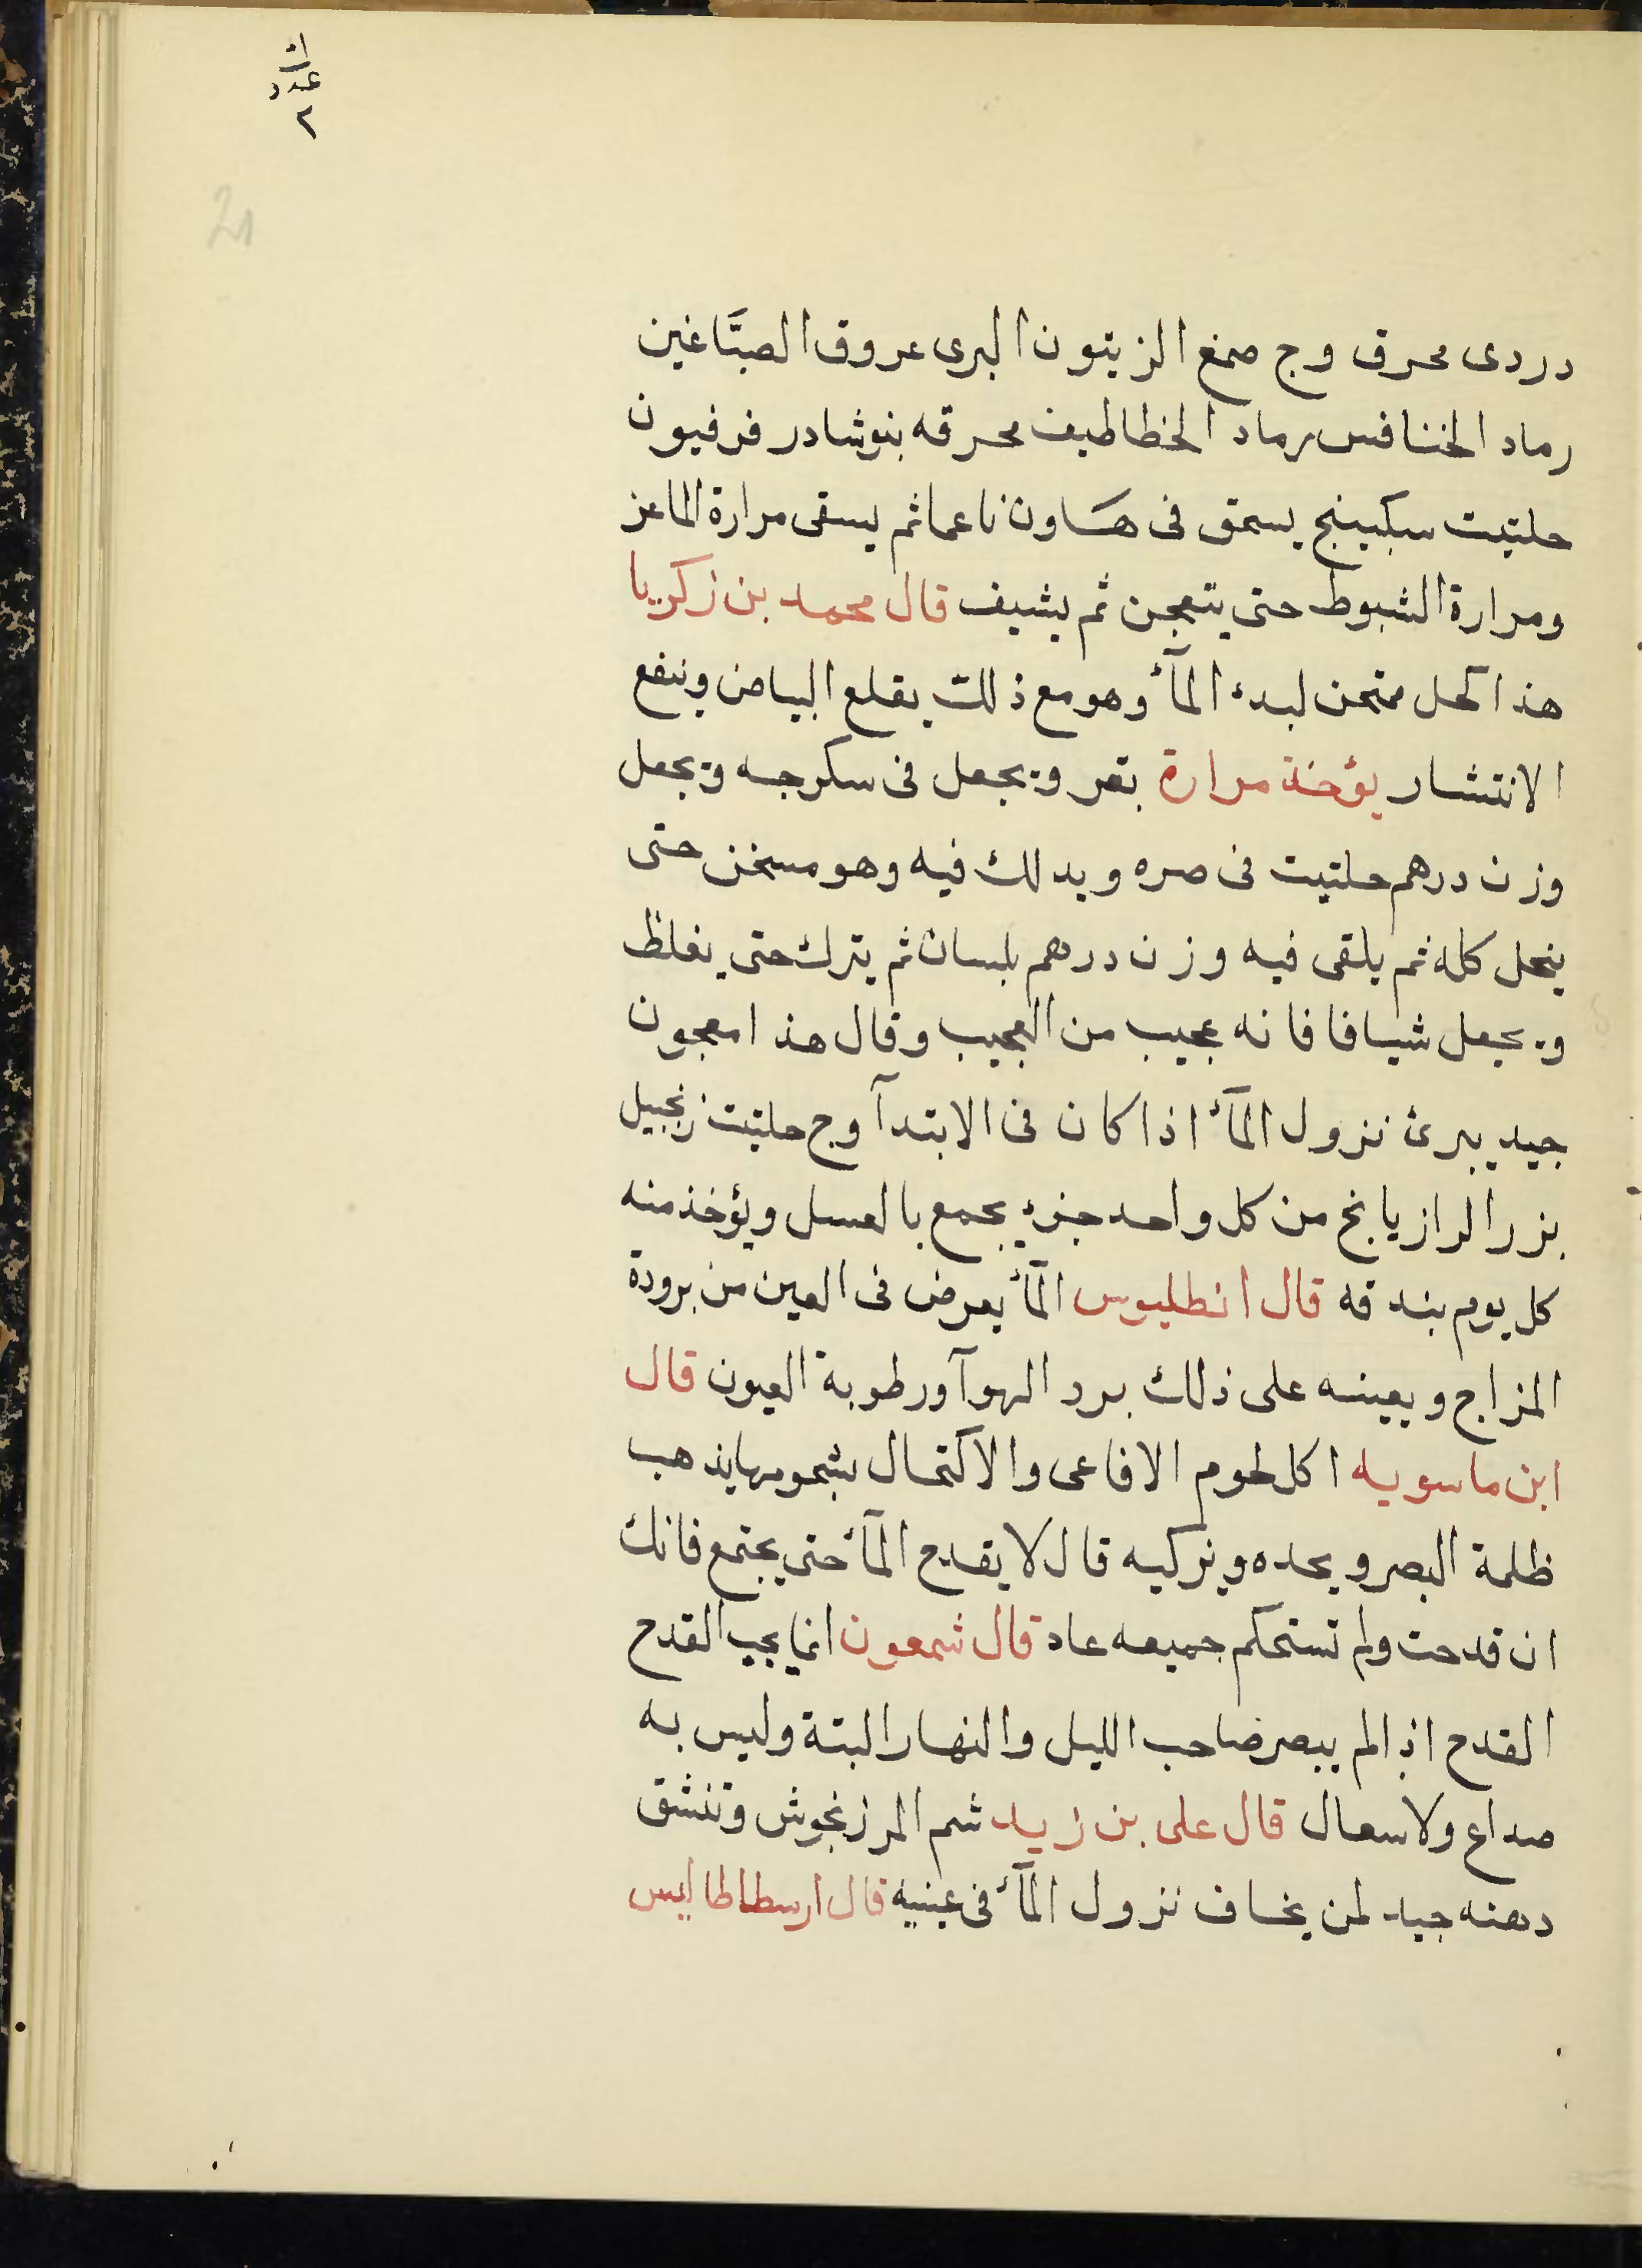 عدد
٢
21
دردى محرق وج صمغ الزيتون البرى عروق الصبَّاغين
رماد الخنافس رماد الخطاطيف محرقه بنوشادر فرفيون
حلتيت سكبينج يسحق فى هاون ناعما ثم يسقى مرارة الماعز
ومرارة الشبوط حتى يتعجن ثم يشيف قال محمد بن زكريا
هذا كحل ممتحن لبدء المآء وهو مع ذلك يقلع البياض وينفع
الانتشار يؤخذ مرارة بقر ويجعل فى سكرجه ويجعل
وزن درهم حلتيت فى صره ويدلك فيه وهو مسخن حتى
ينحل كله ثم يلقى فيه وزن درهم بلسان ثم يترك حتى يغلظ
ويجعل شيافا فانه عجيب من العجيب وقال هذا معجون
جيد يبرئ نزول المآء اذا كان فى الابتدآ وج حلتيت زنجبيل
بزر الرازيانج من كل واحد جزء يجمع بالعسل ويؤخذ منه
كل يوم بندقه قال انطليوس المآء يعرض فى العين من برودة
المزاج ويعينه على ذلك برد الهوآ ورطوبة العيون قال
ابن ماسويه اكل لحوم الافاعى والاكتحال بشحومها يذهب
ظلمة البصر ويحده ويزكيه قال لا يقدح المآء حتى يجتمع فانك
ان قدحت ولم تستحكم جميعه عاد قال شمعون انما يجب القدح
القدح اذا لم يبصر صاحب الليل والنهار البتة وليس به
صداع ولا سعال قال على بن زيد شم المرزنجوش وتنشق
دهنه جيد لمن يخاف نزول المآء فى عينيه قال ارسطاطاليس